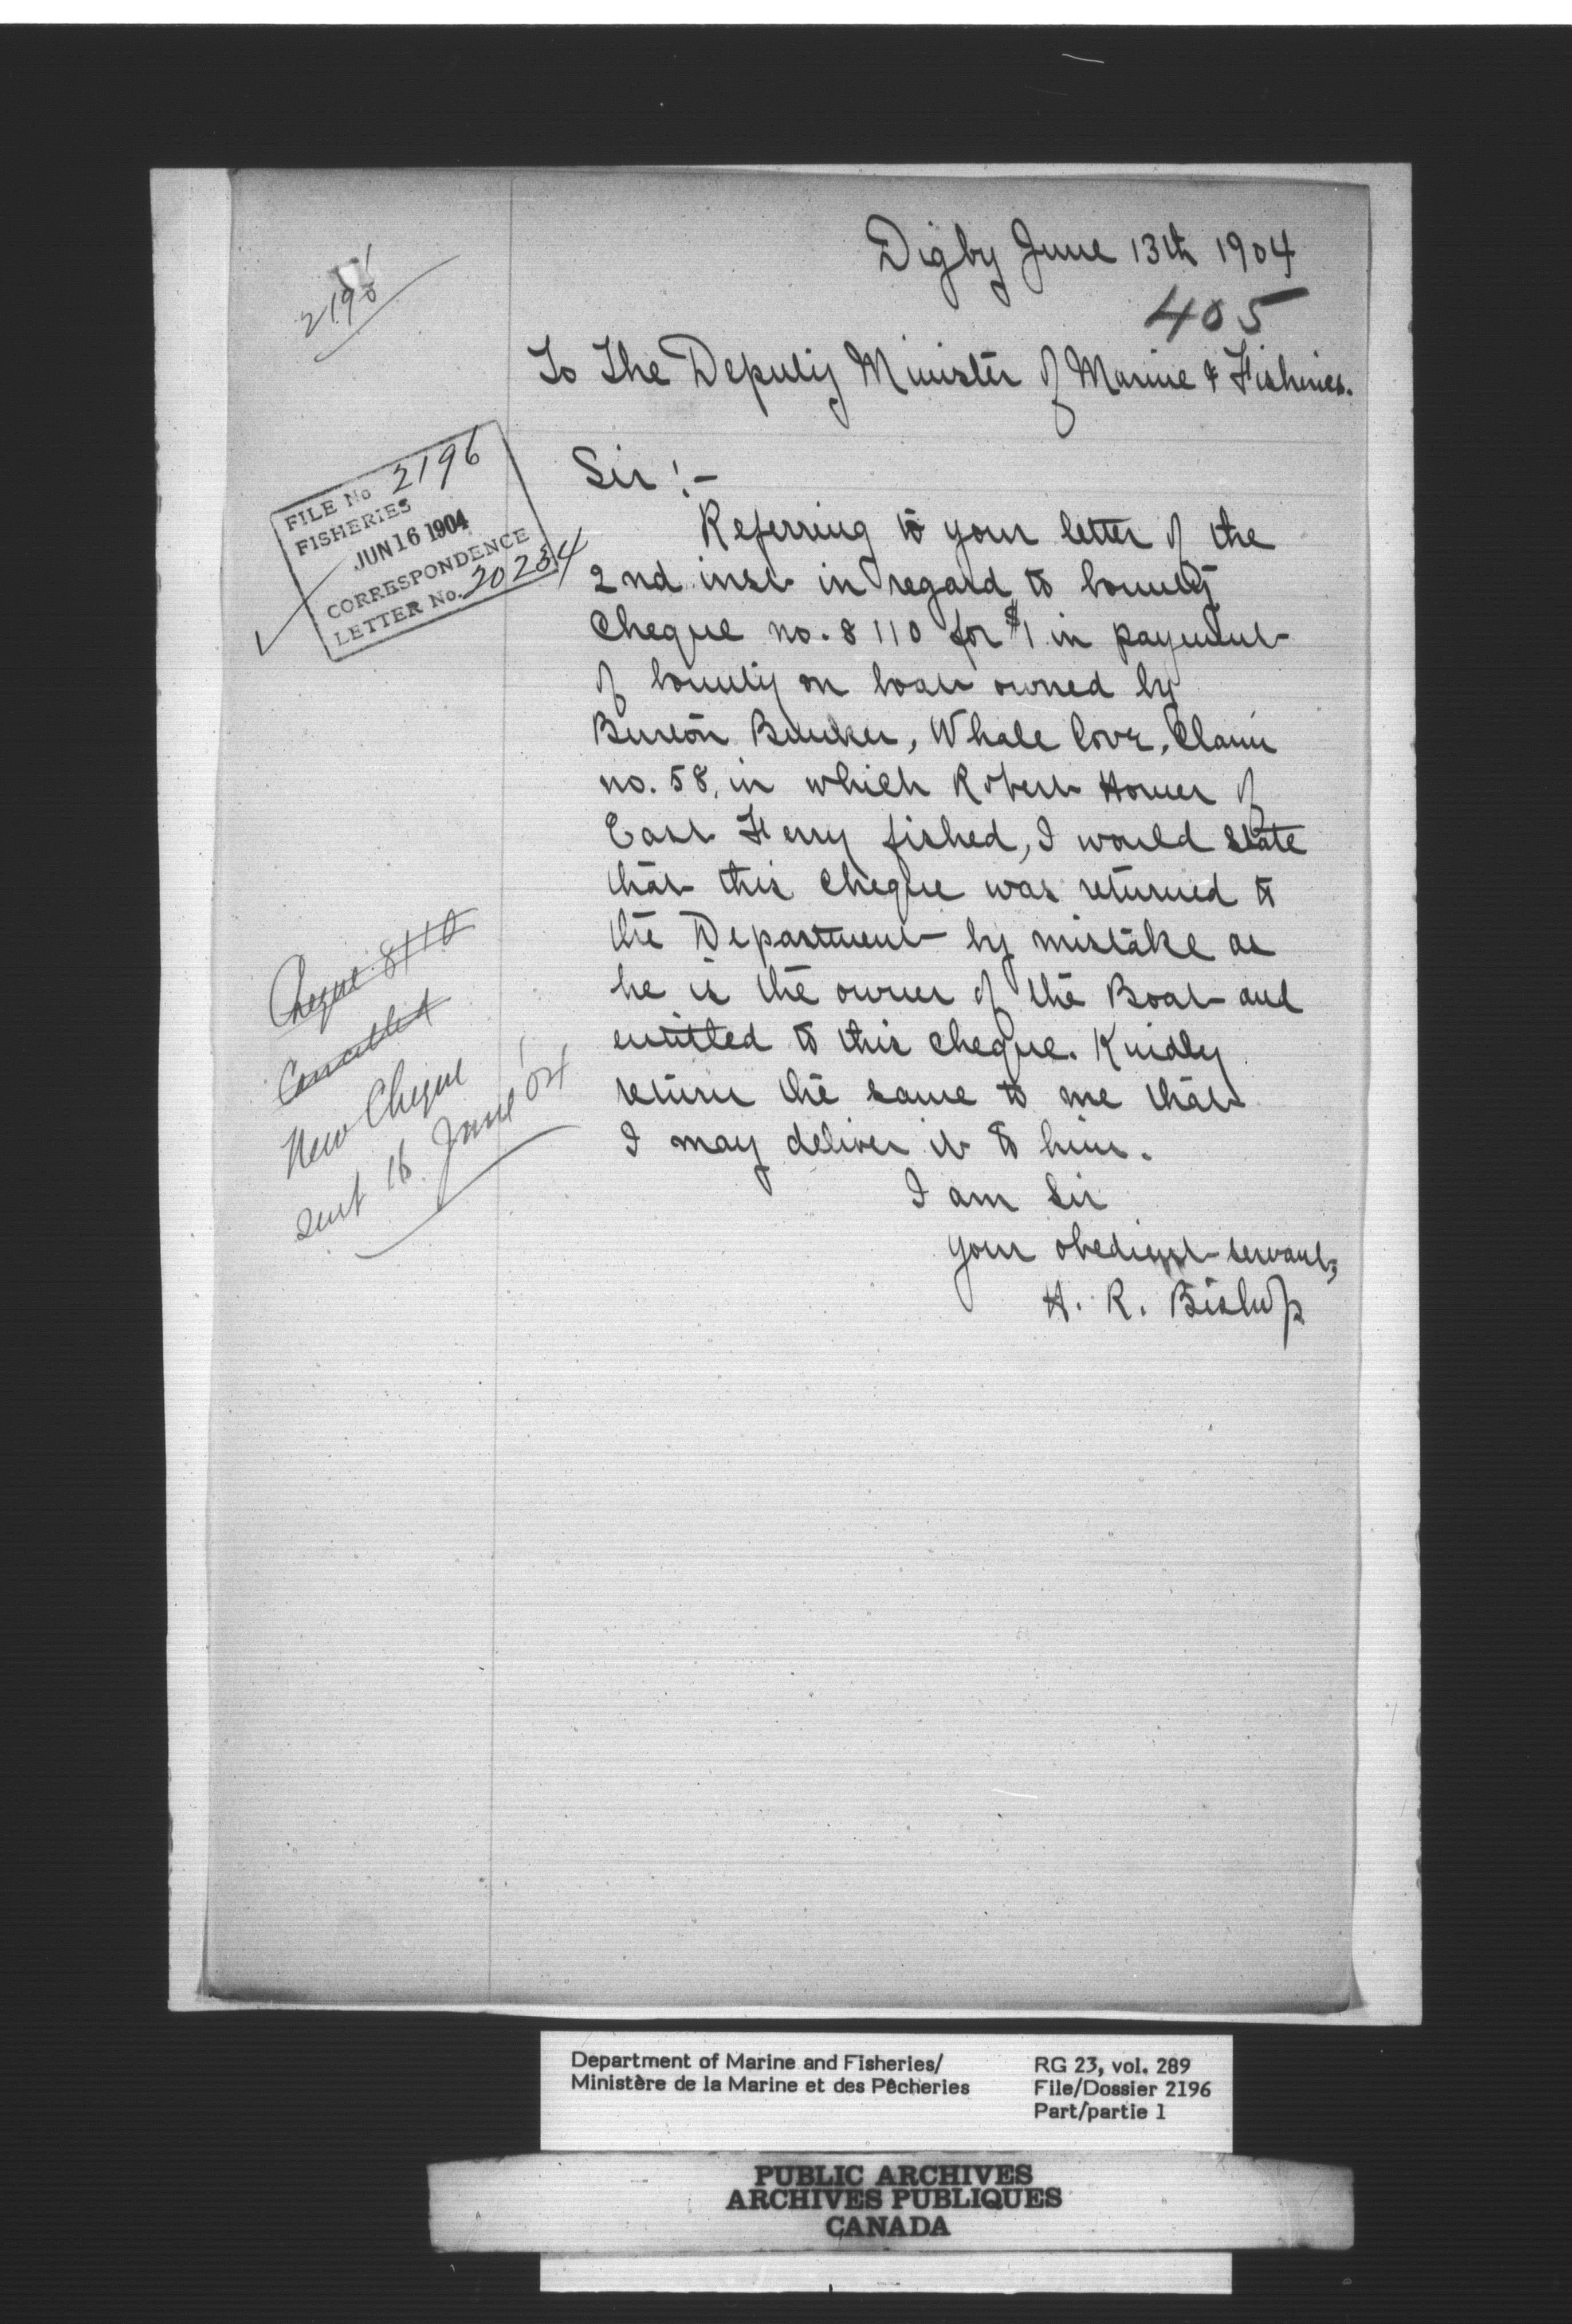 Digby June 13th 1904
405
2196
To The Deputy Minister of Marine & Fisheries.
FILE No 2196
FISHERIES
JUN 16 1904
CORRESPONDENCE
LETTER No. 20234
Sir!-
Referring to your letter of the
2nd inst in regard to bounty
Cheque no. 8110 for $1 in payment
of bounty on boat owned by
Burton Bunker, Whale Cove, Claim
no. 58, in which Robert Homer of
East Ferry fished, I would state
that this cheque was returned to
the Department by mistake as
he is the owner of the Boat and
entitled to this cheque. Kindly
return the same to me that
I may deliver it to him.
I am Sir
your obedient servant,
H. R. Bishop
Cheque 8110
Cancelled
New Cheque
sent 16 June '04
Department of Marine and Fisheries/
Ministère de la Marine et des Pêcheries
RG 23, vol. 289
File/Dossier 2196
Part/partie 1
PUBLIC ARCHIVES
ARCHIVES PUBLIQUES
CANADA